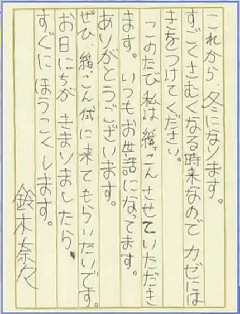 これから 冬になります。
すごくさむくなる時来なので カゼには
きをつけてください。
このたび私は 結っこん させていただき
ます。いつもお世話になってます。
ありがとうございます。
ぜひ、結こん式に来てもらいたいです。
お日にちが きまりましたら、
すぐに ほうこくします。
鈴木奈々